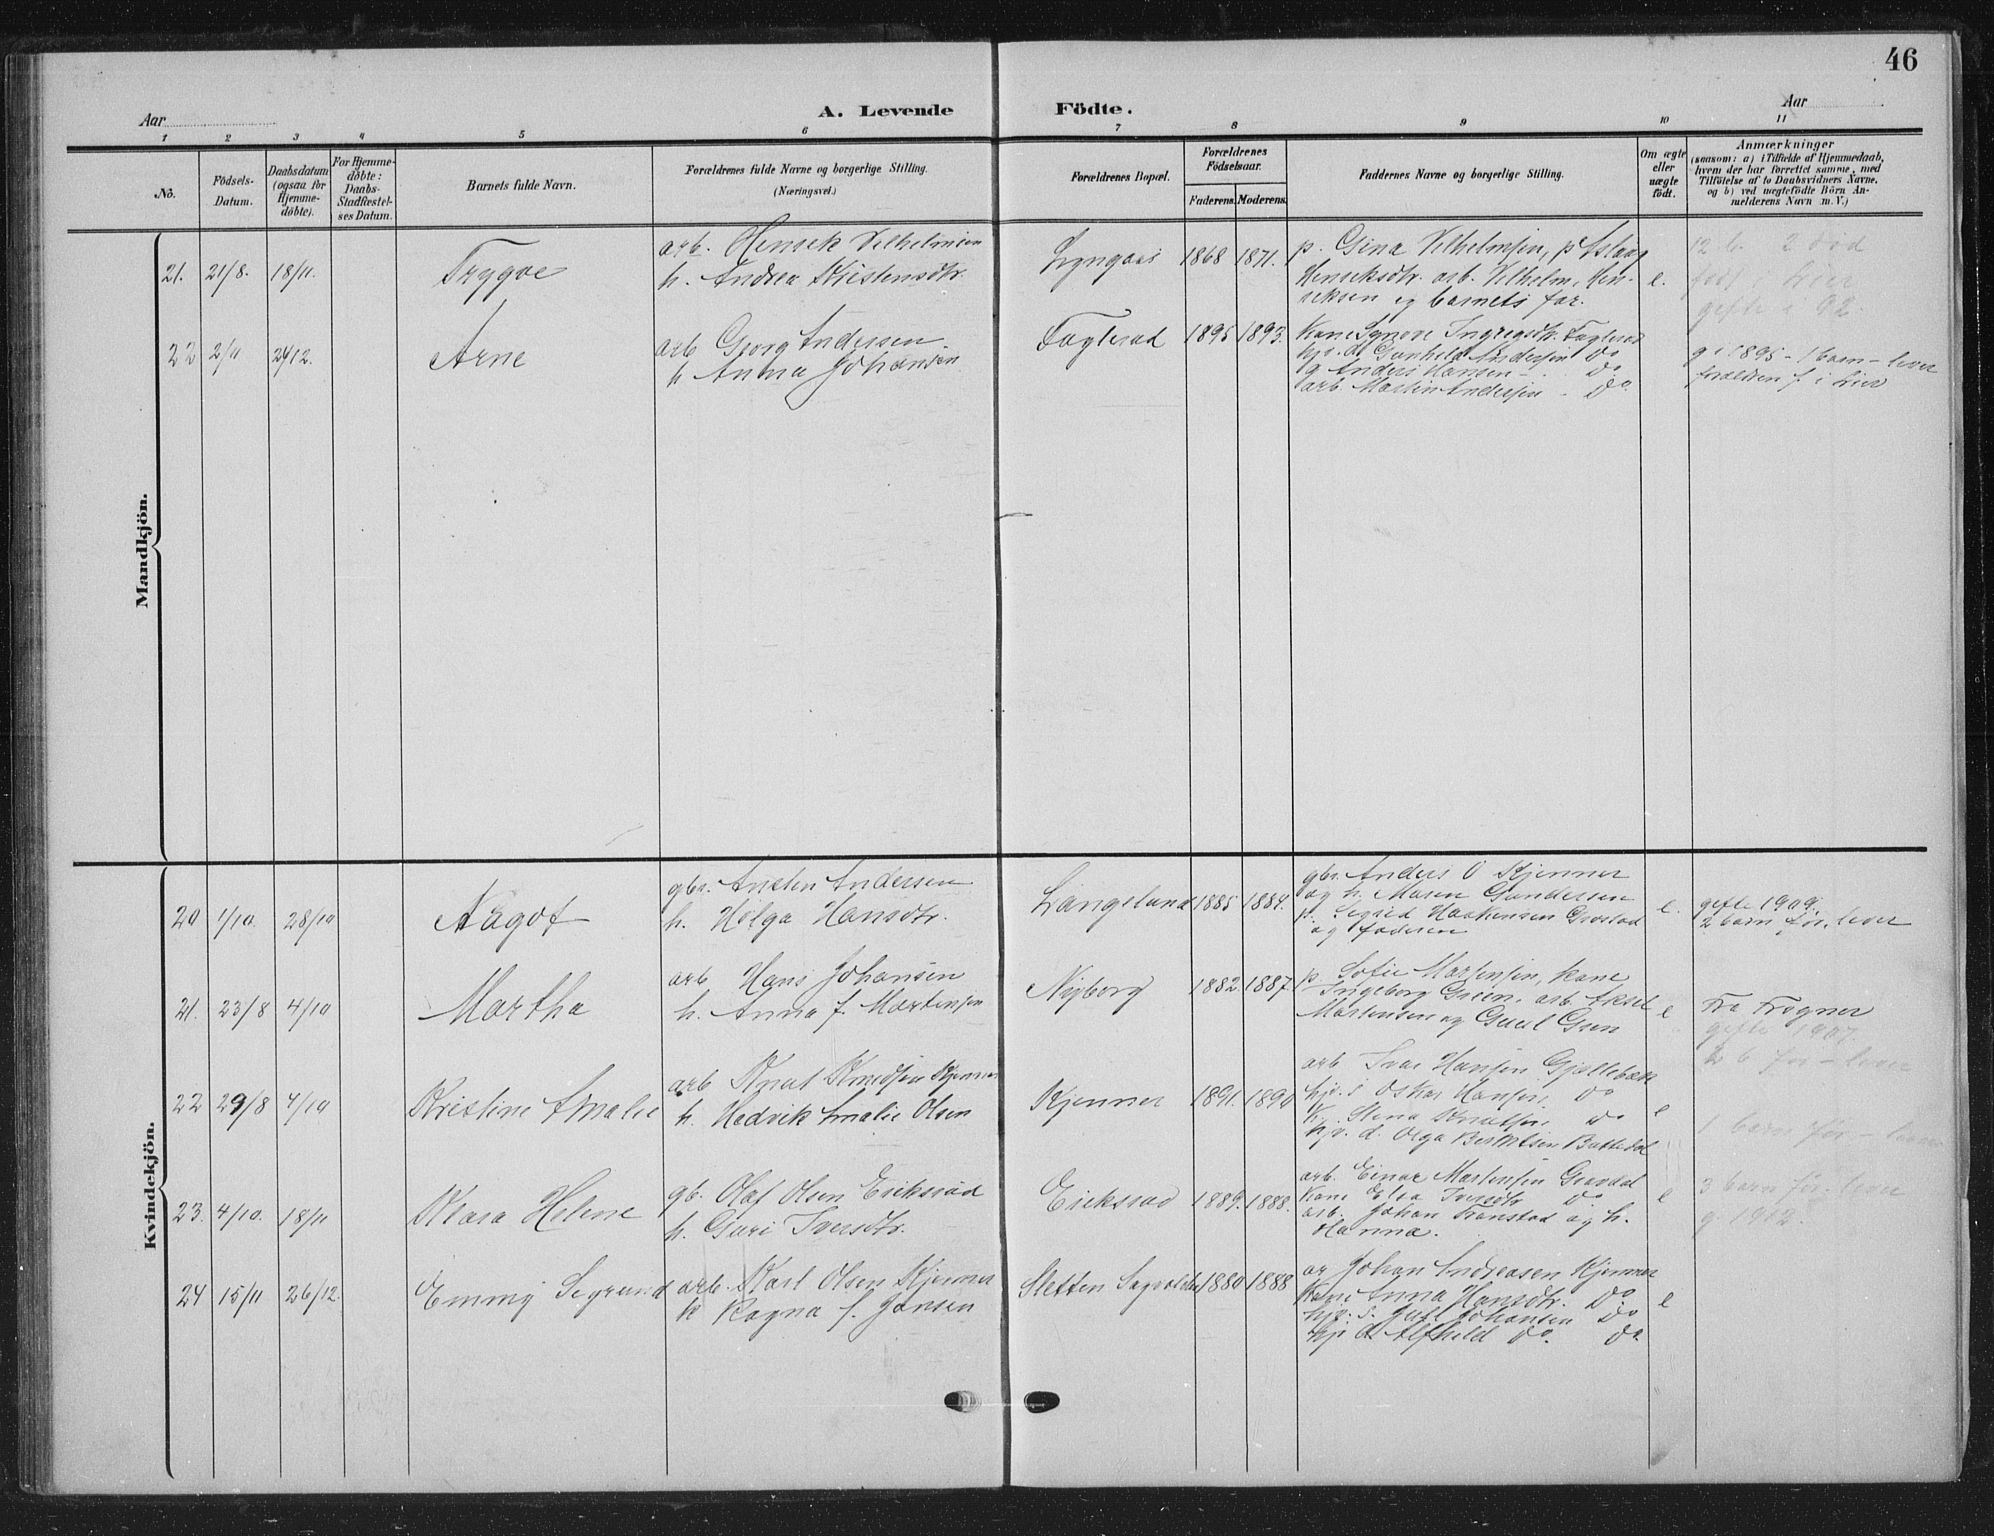 46
Aar
A. Levende Födte.
Aar
1 2 3 4 5 6 7 8 9 10 11
No.
Födsels-Datum.
Daabsdatum (ogsaa for Hjemme-döbte).
For Hjemme-döbte: Daabs-Stadfæstel-ses Datum.
Barnets fulde Navn.
Forældrenes fulde Navne og borgerlige Stilling.
(Næringsvei.)
Forældrenes Bopæl.
Forældrenes Födselsaar.
Faderens. Moderens.
Faddernes Navne og borgerlige Stilling.
Om ægte eller uægte födt.
Anmærkninger
(saasom: a) i Tilfælde af Hjemmedaab, hvem der har forrettet samme, med Tilföielse af to Daabsvidners Navne, og b) ved uægtefödte Börn An-melderens Navn m. V.)
Mandkjön.
21. 21/8. 18/11. Trygve
arb. Henrik Vilhelmsen
h. Andrea Kristensdtr.
Lyngaas 1868 1871.
p. Gina Vilhelmsen, p Aslaug
Henriksdtr. arb. Vilhelm Hen-
riksen og barnets far.
e.
12 b. 2 død
født i Lier
gifte i 92.
22 2/11 24/12. Arne
arb Georg Andersen.
h Anna Johansen
Faglerud 1895 1893.
Kone Synøve Ingvegsdtr. Faglerud
hjv. d. Gunhild Andersen Do
g Anders Hansen - Do
arb. Martin Andersen - Do
g i 1895 - 1 barn - lever
foreldren f. i Lier
Kvindekjön.
20 1/10. 28/10 Aagot
gbr. Anders Andersen
h. Helga Hansdtr.
Langelund 1885 1884.
gbr. Anders O Kjenner
og h. Maren Gundersen
p. Sigrid Haakensen Grøstad
og faderen
e.
gifte 1909.
2 barn før. lever
21. 23/8 4/10 Martha
arb Hans Johansen
h. Anna f. Martensen
Nyborg 1882 1887
p. Sofie Martensen, kone
Ingeborg Green, arb. Aksel
Martensen og Green
e
Fra Frogner
gifte 1907.
2 b før - lever
22 29/8 4/10 Kristine Amalie
arb Knut Knudsen Kjenner
h. Hedvik Amalie Olsen
Kjenner 1891. 1890
arb Ivar Hansen Gjellebæk
hjv. s Oskar Hansen Do
K. Stina Do
hjv. d. Olga Berntsen
e
1 barn før - lever
23. 4/10. 18/11 Klara Helene
gb. Olaf Olsen Eriksrud
h. Guri Iversdtr.
Eriksrud 1889. 1888.
arb. Einar Martensen Gravdal
kone Elsa Iversdtr Do
arb. Johan Transtad og h.
Hanna.
e
3 barn før. lever
g. 1912.
24 15/11 26/12. Emmy Sigrund
arb. Karl Olsen Kjenner
h Ragna f. Jansen
Sletten 1880 1888
ar Johan Andreasen Kjenner
Kone Anna Hansdtr. Do
hjv. s. Johansen Do
hjv d. Alfhild Do. Do
e